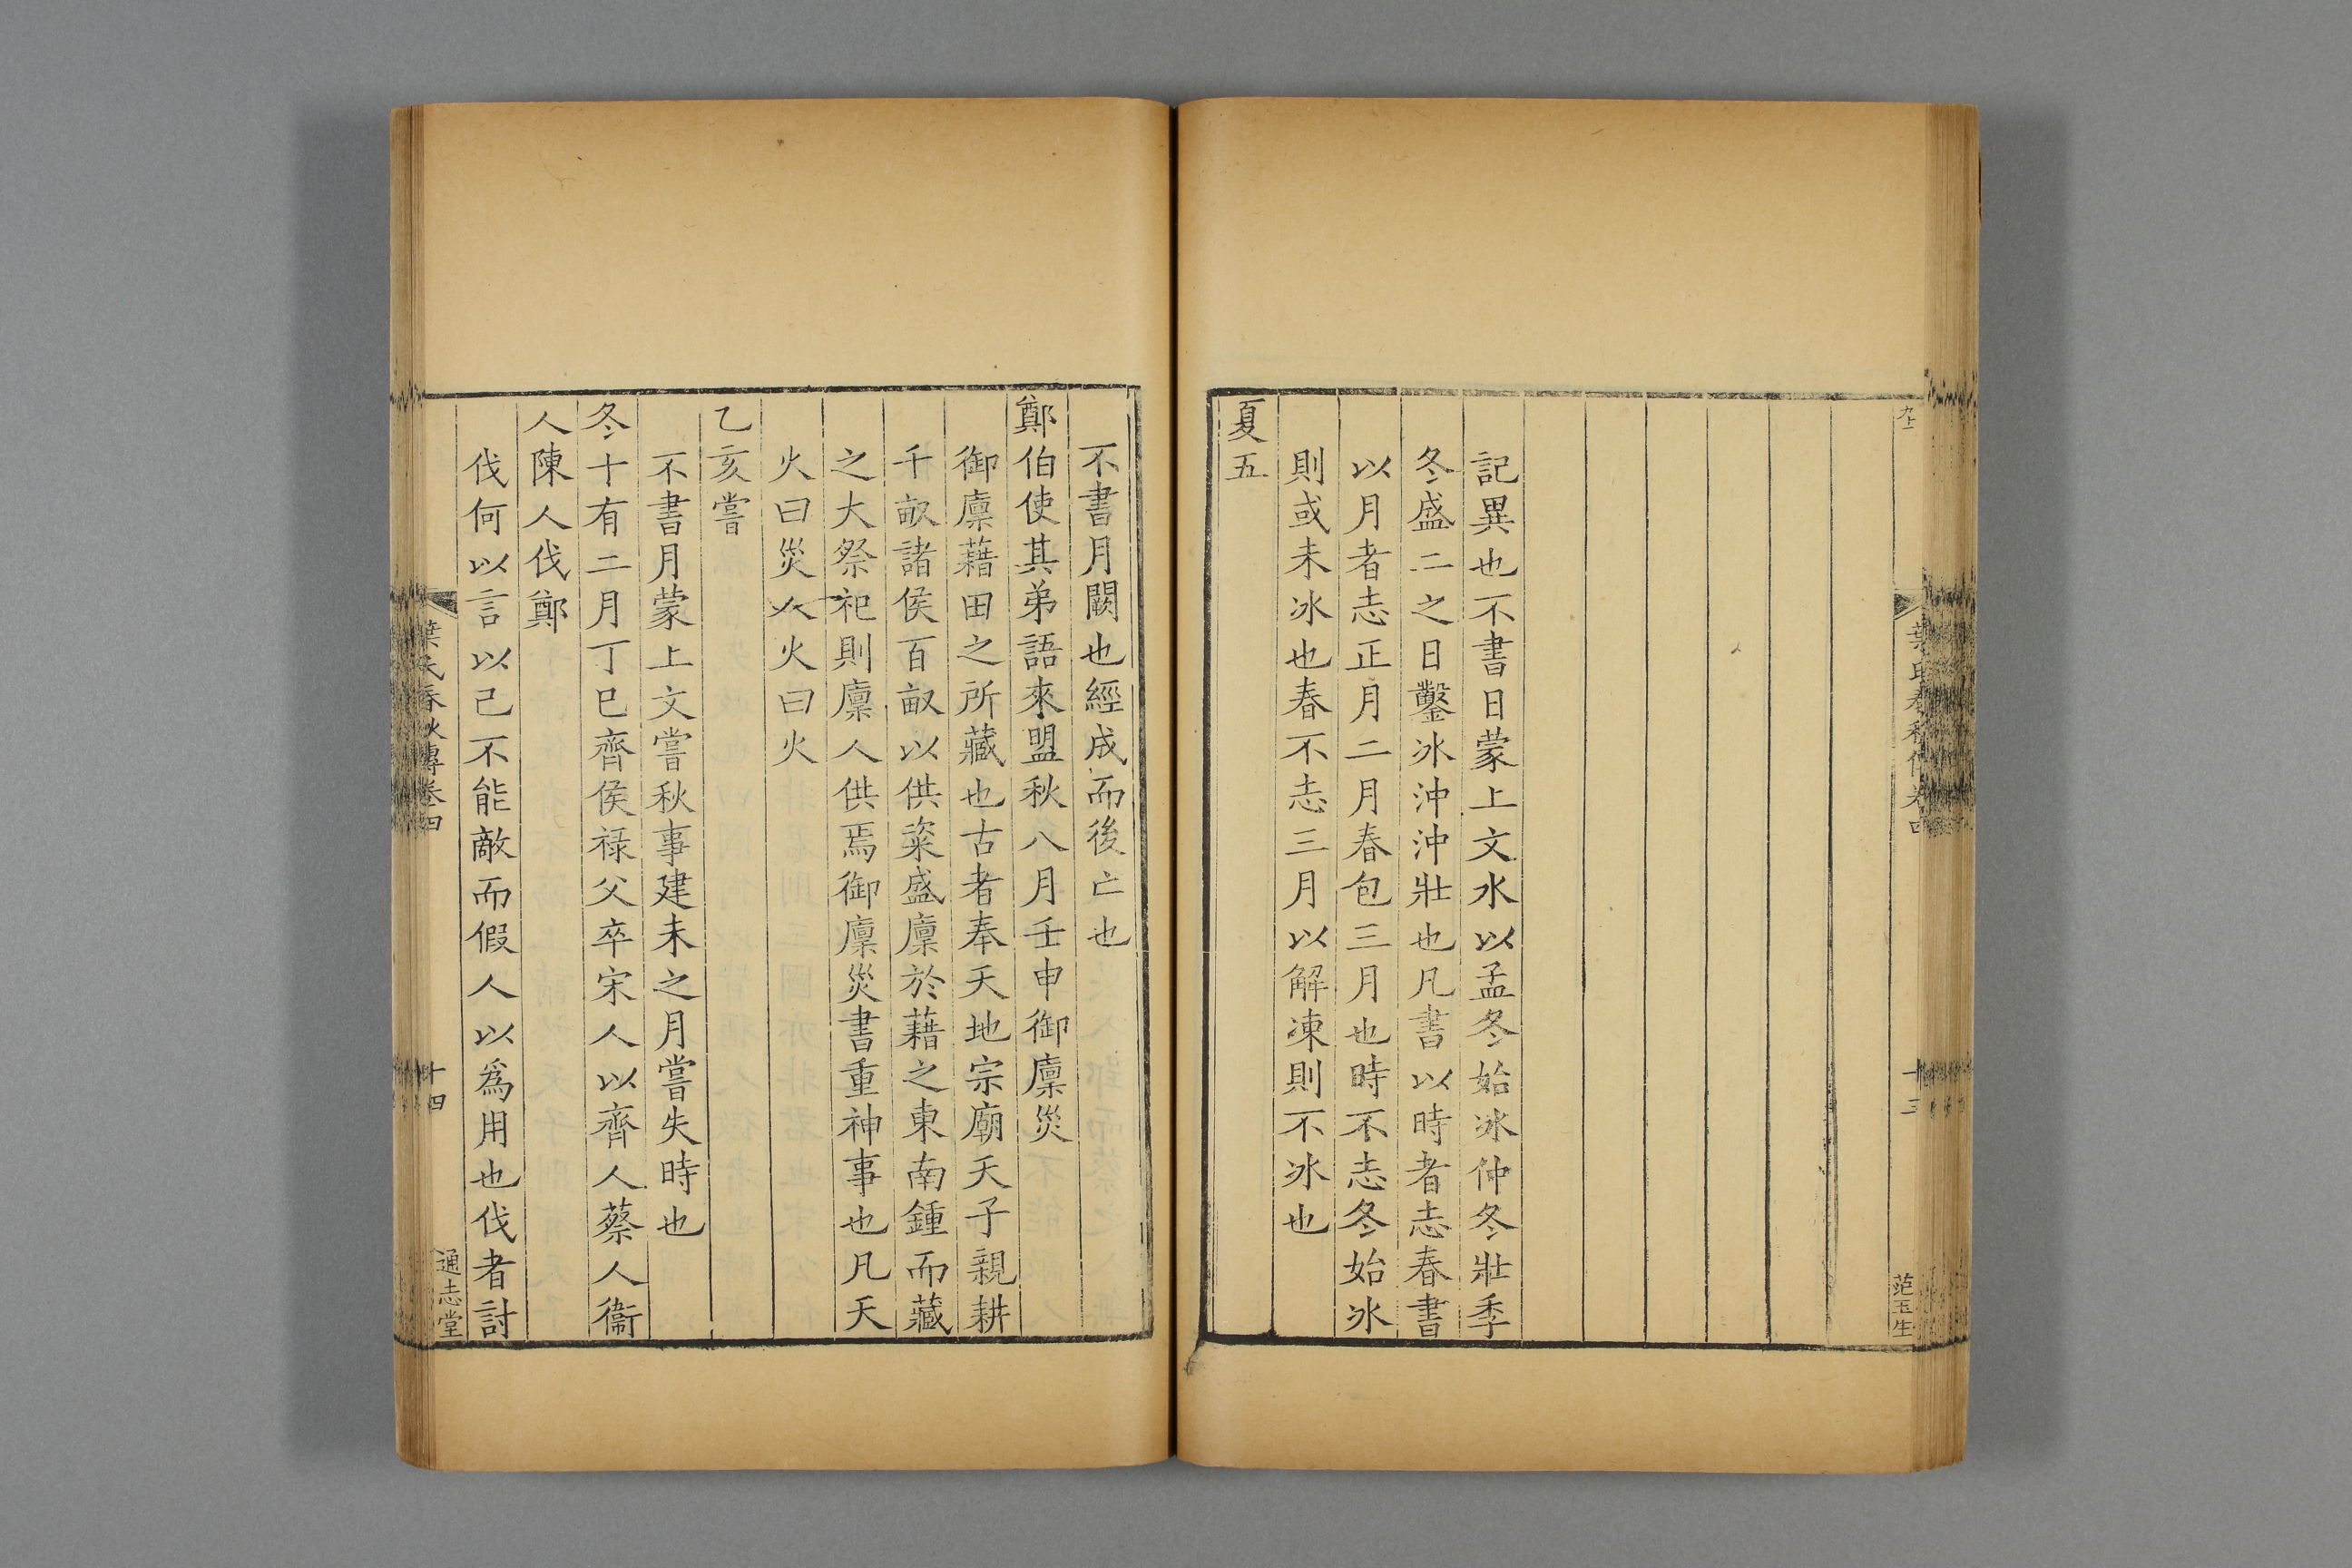 記異也不書日蒙上文水以孟冬始冰仲冬壯季
冬盛二之日鑿冰沖沖壯也凡書以時者志春書
以月者志正月二月春包三月也時不志冬始冰
則或未冰也春不志三月以解凍則不冰也
夏五
范玉生
不書月闕也經成而後亡也
鄭伯使其弟語來盟秋八月壬申御廩災
御廩藉田之所藏也古者奉天地宗廟天子親耕
千畝諸侯百畝以供粢盛廩於藉之東南鍾而藏
之大祭祀則廩人供焉御廩災書重神事也凡天
火曰災人火曰火
乙亥嘗
不書月蒙上文嘗秋事建未之月嘗失時也
冬十有二月丁巳齊侯禄父卒宋人以齊人蔡人衞
人陳人伐鄭
伐何以言以己不能敵而假人以為用也伐者討
葉氏春秋傳卷四
十四
通志堂